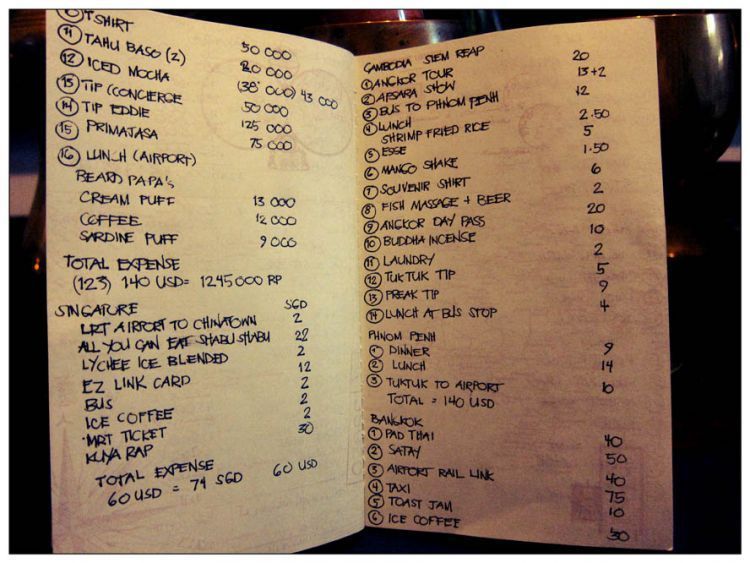 10 T SHIRT
11 TAHU BASO (2) 50 000
12 ICED MOCHA 20 000
13 TIP (CONCIERGE (38 000) 43 000
14 TIP EDDIE 50 000
15 PRIMAJASA 125 000
75 000
16 LUNCH (AIRPORT)
BEARD PAPA'S
CREAM PUFF 13 000
COFFEE 12 000
SARDINE PUFF 9 000
TOTAL EXPENSE
(123) 140 USD = 1245000 RP
SINGAPURE SGD
LRT AIRPORT TO CHINATOWN 2
ALL YOU CAN EAT SHABU SHABU 22
LYCHEE ICE BLENDED 2
EZ LINK CARD 12
BUS 2
ICE COFFEE 2
MRT TICKET 30
KUYA RAP
TOTAL EXPENSE 60 USD
60 USD = 74 SGD
CAMBODIA SIEM REAP
1 ANGKOR TOUR 20
2 APSARA SHOW 13+2
3 BUS TO PHNOM PENH 12
4 LUNCH
SHRIMP FRIED RICE 2.50
5 ESSE 5
6 MANGO SHAKE 1.50
7 SOUVENIR SHIRT 6
8 FISH MASSAGE + BEER 2
9 ANGKOR DAY PASS 20
10 BUDDHA INCENSE 10
11 LAUNDRY 2
12 TUKTUK TIP 5
13 PREAK TIP 9
14 LUNCH AT BUS STOP 4
PHNOM PENH
1 DINNER 9
2 LUNCH 14
3 TUKTUK TO AIRPORT 10
TOTAL = 140 USD
BANGKOK
1 PAD THAI 40
2 SATAY 50
3 AIRPORT RAIL LINK 40
4 TAXI 75
5 TOAST JAM 10
6 ICE COFFEE 30